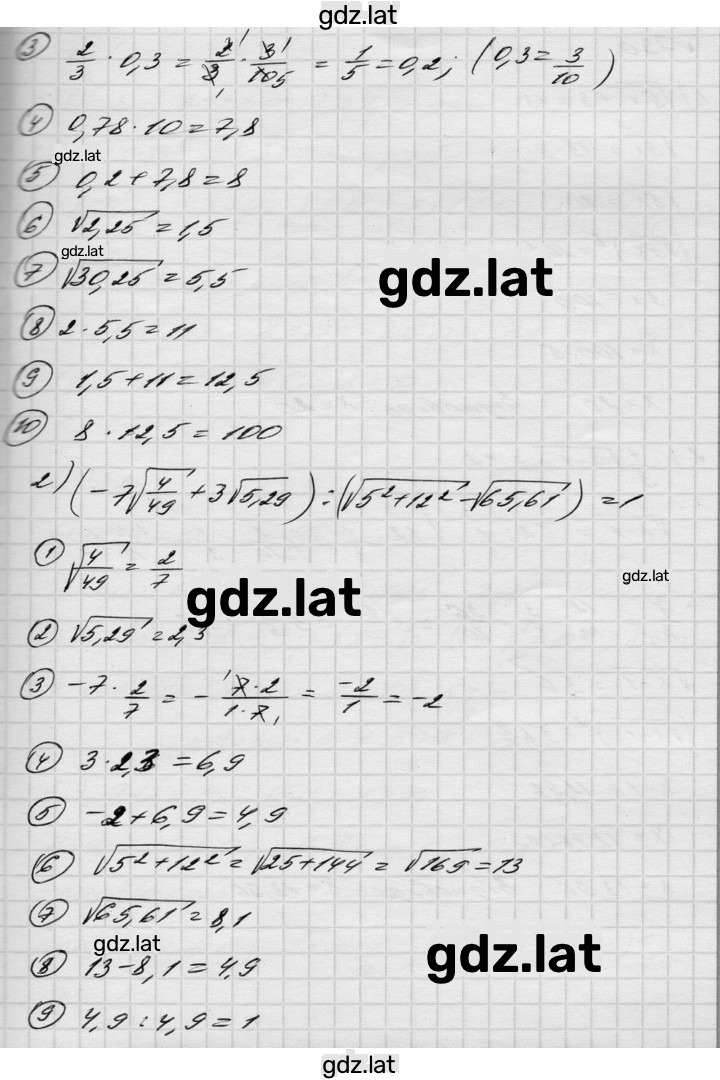 gdz.lat
③ 2/3 · 0,3 = 2/3 · 3/10 5 = 1/5 = 0,2; (0,3 = 3/10)
④ 0,78 · 10 = 7,8
gdz.lat
⑤ 0,2 + 7,8 = 8
⑥ √2,25 = 1,5
gdz.lat
⑦ √30,25 = 5,5
gdz.lat
⑧ 2 · 5,5 = 11
⑨ 1,5 + 11 = 12,5
⑩ 8 · 12,5 = 100
2) (-7√4/49 + 3√5,29) : (√5²+12² - √65,61) = 1
① √4/49 = 2/7
gdz.lat
gdz.lat
② √5,29 = 2,3
③ -7 · 2/7 = - 7·2/1·7 = -2/1 = -2
④ 3 · 2,3 = 6,9
⑤ -2 + 6,9 = 4,9
⑥ √5²+12² = √25+144 = √169 = 13
⑦ √65,61 = 8,1
gdz.lat
gdz.lat
⑧ 13 - 8,1 = 4,9
⑨ 4,9 : 4,9 = 1
gdz.lat